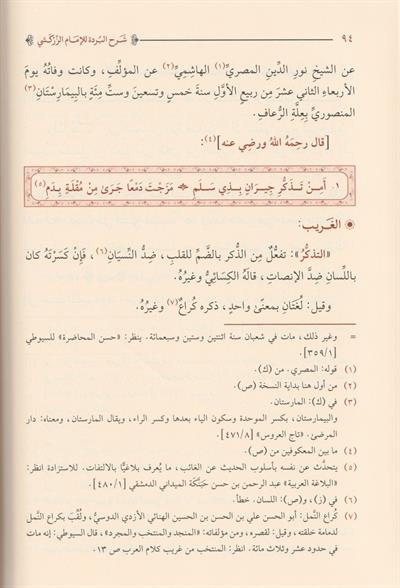 ٩٤ شَرح البُردة للإمَام الزّركَشي
عن الشيخ نور الدِّين المصريِّ(١) الهاشِمِيِّ(٢) عن المؤلِّفِ، وكانت وفاتُهُ يومَ
الأربعاءِ الثاني عشرَ مِن ربيعِ الأوَّلِ سنةَ خمسٍ وتسعينَ وستِّ مِئةٍ بالبِيمَارِسْتَانِ(٣)
المنصوريِّ بِعِلَّةِ الرُّعافِ.
[قال رحِمَهُ اللهُ ورضي عنه](٤):
١. أَمِنْ تَذَكُّرِ جِيرَانٍ بِذِي سَلَمِ مَزَجْتَ دَمْعًا جَرَى مِنْ مُقْلَةٍ بِدَمِ(٥)
الغَرِيب:
«التذكُّرُ»: تفعُّلٌ مِن الذُّكر بالضَّمِّ للقلبِ، ضِدُّ النِّسيَانِ(٦)، فَإِنْ كَسَرْتَهُ كان
باللِّسان ضِدَّ الإنصاتِ، قالَهُ الكِسَائِيُّ وغيرُهُ.
وقيل: لُغَتَانِ بمعنًى واحدٍ، ذكره كُراعٌ(٧) وغيرُه.
= وغير ذلك، مات في شعبان سنة اثنتين وستين وسبعمائة. ينظر: «حسن المحاضرة» للسيوطي
[٣٥٩/١].
(١) قوله: المصري. من (ك).
(٢) من أول هنا بداية النسخة (ص).
(٣) في (ك): المارستان.
والبيمارستان، بكسر الموحدة وسكون الياء بعدها وكسر الراء، ويقال المارستان، ومعناه: دار
المرضى. «تاج العروس» [٤٧١/٨].
(٤) ما بين المعكوفين من (ص).
(٥) يتحدَّث عن نفسه بأسلوب الحديث عن الغائب، ما يُعرف بلاغيًّا بالالتفات. للاستزادة انظر:
«البلاغة العربية» عبد الرحمن بن حسن حَبَنَّكَة الميداني الدمشقي [٤٨٠/١].
(٦) في (ز)، و(ص): اللسان. خطأ.
(٧) كُراع النَّمل: أبو الحسن علي بن الحسن بن الحسين الهنائي الأزدي الدوسيُّ، ولُقِّبَ بكراع النَّمل
لدمامة خلقته، وقيل: لقصره، ومن مؤلفاته: «المنجد والمنتخب والمجرد»، قال السيوطي: إنه مات
في حدود عشر وثلاث مائة. انظر: المنتخب من غريب كلام العرب ص ١٣.